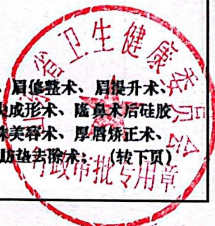 省卫生健康委员会
、眉修整术、眉提升术、
成形术、隆鼻术后硅胶
美容术、厚唇矫正术、
脂肪垫去除术；（转下页）
行政审批专用章